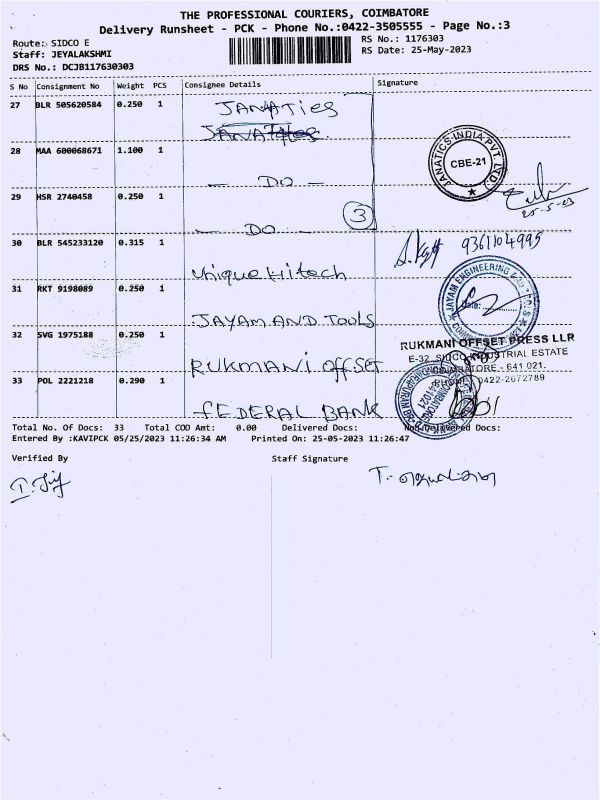 THE PROFESSIONAL COURIERS, COIMBATORE
Delivery Runsheet - PCK - Phone No.:0422-3505555 - Page No.:3
Route: SIDCO E
Staff: JEYALAKSHMI
DRS No.: DCJB117630303
RS No.: 1176303
RS Date: 25-May-2023
S No Consignment No Weight PCS Consignee Details Signature
27 BLR 505620584 0.250 1 JANATies
28 MAA 600068671 1.100 1 — DO —
JANATICS INDIA PVT. LTD.
CBE-21
25-5-23
29 HSR 2740458 0.250 1 — DO —
3
30 BLR 545233120 0.315 1 Unique Hitech
9361104995
31 RKT 9198089 0.250 1 JAYAM AND TOOLS
JAYAM ENGINEERING
Date:
32 SVG 1975188 0.250 1 RUKMANI OFFSET
RUKMANI OFFSET PRESS LLR
E-32, SIDCO INDUSTRIAL ESTATE
COIMBATORE - 641 021.
PHONE: 0422-2672789
33 POL 2221218 0.290 1 FEDERAL BANK
Total No. Of Docs: 33 Total COD Amt: 0.00 Delivered Docs: Non-Delivered Docs:
Entered By :KAVIPCK 05/25/2023 11:26:34 AM Printed On: 25-05-2023 11:26:47
Verified By Staff Signature